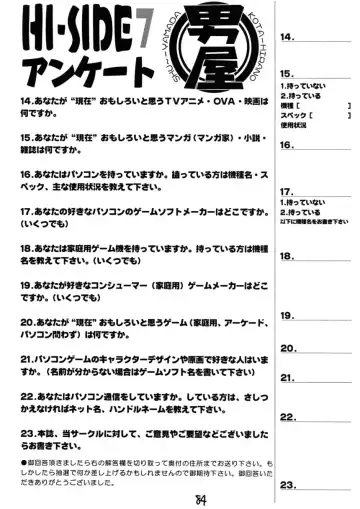 HI-SIDE7
アンケート
男屋
SHUJI-YAMADA
KOTA-HIRANO
14.あなたが"現在"おもしろいと思うTVアニメ・OVA・映画は
何ですか。
15.あなたが"現在"おもしろいと思うマンガ(マンガ家)・小説・
雑誌は何ですか。
16.あなたはパソコンを持っていますか。持っている方は機種名・ス
ペック、主な使用状況を教えて下さい。
17.あなたの好きなパソコンのゲームソフトメーカーはどこですか。
(いくつでも)
18.あなたは家庭用ゲーム機を持っていますか。持っている方は機種
名を教えて下さい。(いくつでも)
19.あなたが好きなコンシューマー(家庭用)ゲームメーカーはどこ
ですか。(いくつでも)
20.あなたが"現在"おもしろいと思うゲーム(家庭用、アーケード、
パソコン問わず)は何ですか。
21.パソコンゲームのキャラクターデザインや原画で好きな人はいま
すか。(名前が分からない場合はゲームソフト名を書いて下さい)
22.あなたはパソコン通信をしていますか。している方は、さしつ
かえなければネット名、ハンドルネームを教えて下さい。
23.本誌、当サークルに対して、ご意見やご要望などございました
らお書き下さい。
●御回答頂きましたら右の解答欄を切り取って奥付の住所までお送り下さい。も
しかしたら抽選で何か差し上げるかもしれませんので御期待下さい。御回答いた
だきありがとうございました。
84
14.
15.
1.持っていない
2.持っている
機種[ ]
スペック[ ]
使用状況
16.
17.
1.持っていない
2.持っている
以下に機種名をお書き下さい
18.
19.
20.
21.
22.
23.